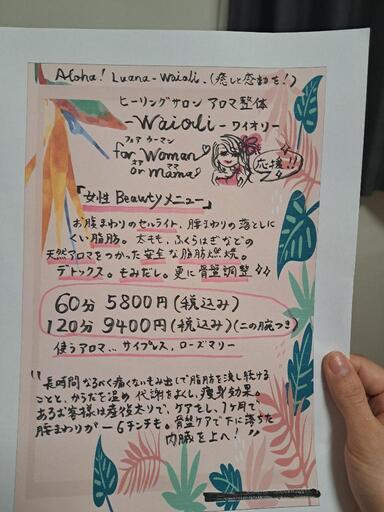 Aloha! Luana-Waioli.(癒しと感動を!)
ヒーリングサロン アロマ整体
-Waioli-ワイオリー
フォア ウーマン
for Woman
オア ママ
or mama
応援!!
「女性 Beautyメニュー」
お腹まわりのセルライト、腰まわりの落としに
くい脂肪。太もも、ふくらはぎなどの
天然アロマをつかった安全な脂肪燃焼。
デトックス。もみだし。更に骨盤調整
60分 5800円(税込み)
120分 9400円(税込み)(二の腕つき)
使うアロマ… サイプレス、ローズマリー
"長時間 なるべく痛くないもみ出しで脂肪を流し続ける
ことと、からだを温め 代謝をよくし、痩身効果。
あるお客様は産後太りで、ケアをし、1ヶ月で
腰まわりが-6センチも。骨盤ケアで下に落ちた
内臓を上へ!"